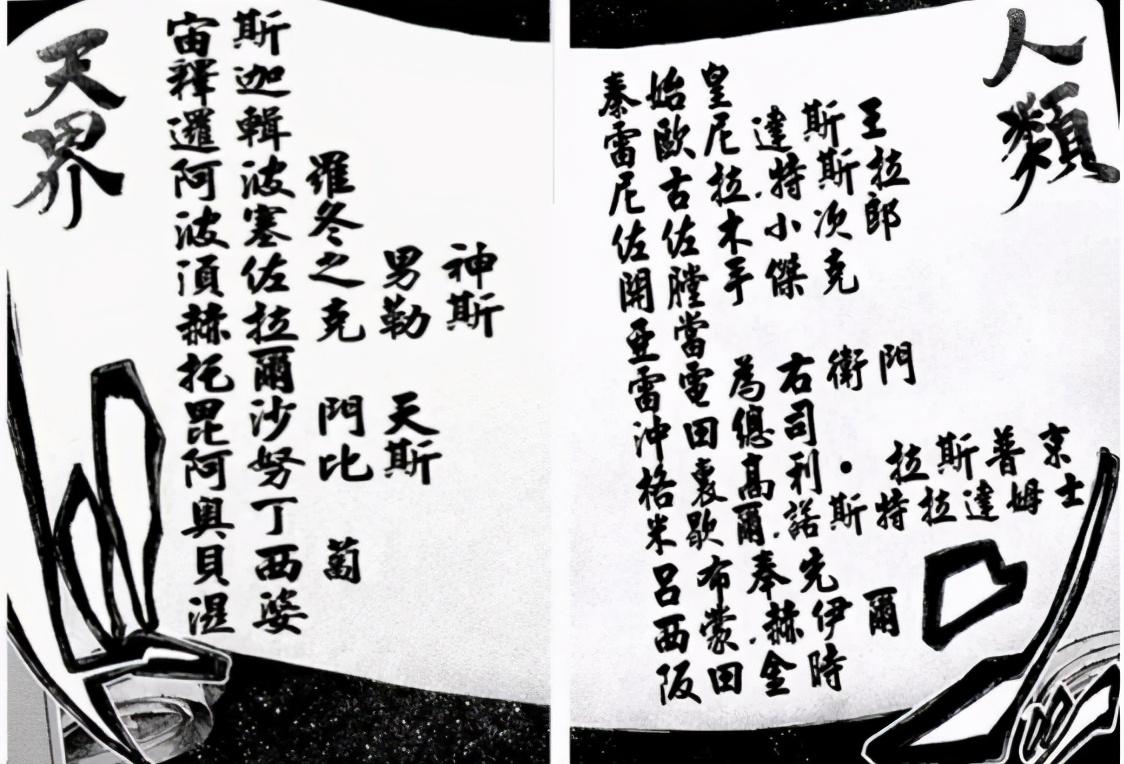 天界
宙斯
釋迦
邏輯
阿波羅
波塞冬
須佐之男神
赫拉克勒斯
托爾
毘沙門天
阿努比斯
奧丁
貝西蔔
湿婆
人類
秦始皇
雷歐尼達斯王
尼古拉·特斯拉
佐佐木小次郎
開膛手傑克
亞當
雷電為右衛門
沖田總司
格裏高利·拉斯普京
米歇爾·諾斯特拉達姆士
呂布奉先
西蒙·赫伊爾
阪田金時